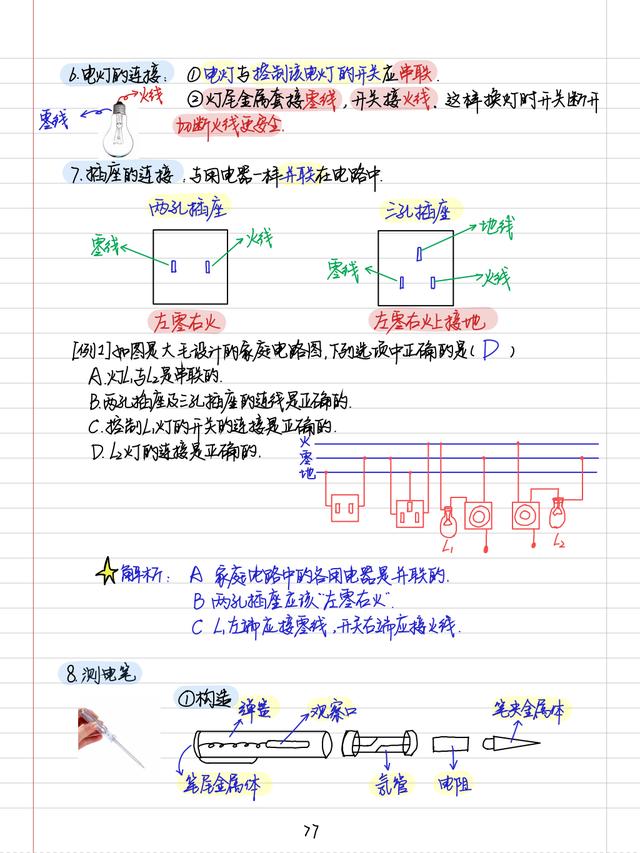 6.电灯的连接: ①电灯与控制该电灯的开关应串联.
②灯尾金属套接零线,开关接火线.这样换灯时开关断开
切断火线更安全.
火线
零线
7.插座的连接:与用电器一样并联在电路中.
两孔插座 三孔插座
零线 火线
地线
零线 火线
左零右火 左零右火上接地
[例1]如图是大毛设计的家庭电路图,下列选项中正确的是( D )
A.灯L₁与L₂是串联的.
B.两孔插座及三孔插座的连线是正确的.
C.控制L₁灯的开关的连接是正确的.
D.L₂灯的连接是正确的.
火
零
地
L₁ L₂
解析: A 家庭电路中的各用电器是并联的.
B 两孔插座应该"左零右火".
C L₁左端应接零线,开关右端应接火线.
8.测电笔
①构造
弹簧 观察口 笔尖金属体
笔尾金属体 氖管 电阻
77